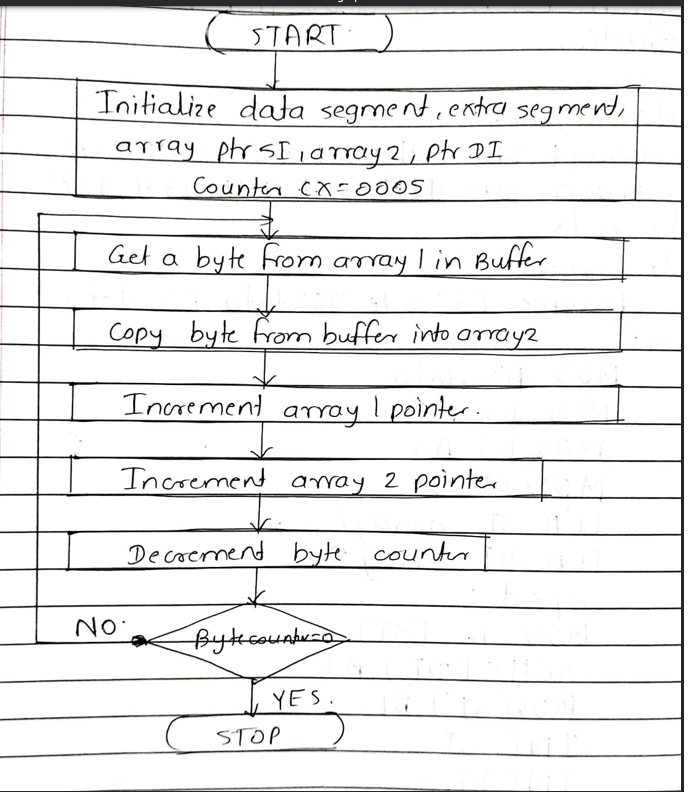 START
Initialize data segment, extra segment,
array ptr SI, array2, ptr DI
Counter CX=0005
Get a byte from array 1 in Buffer
Copy byte from buffer into array2
Increment array 1 pointer.
Increment array 2 pointer
Decrement byte counter
NO.
Byte counter=0
YES.
STOP